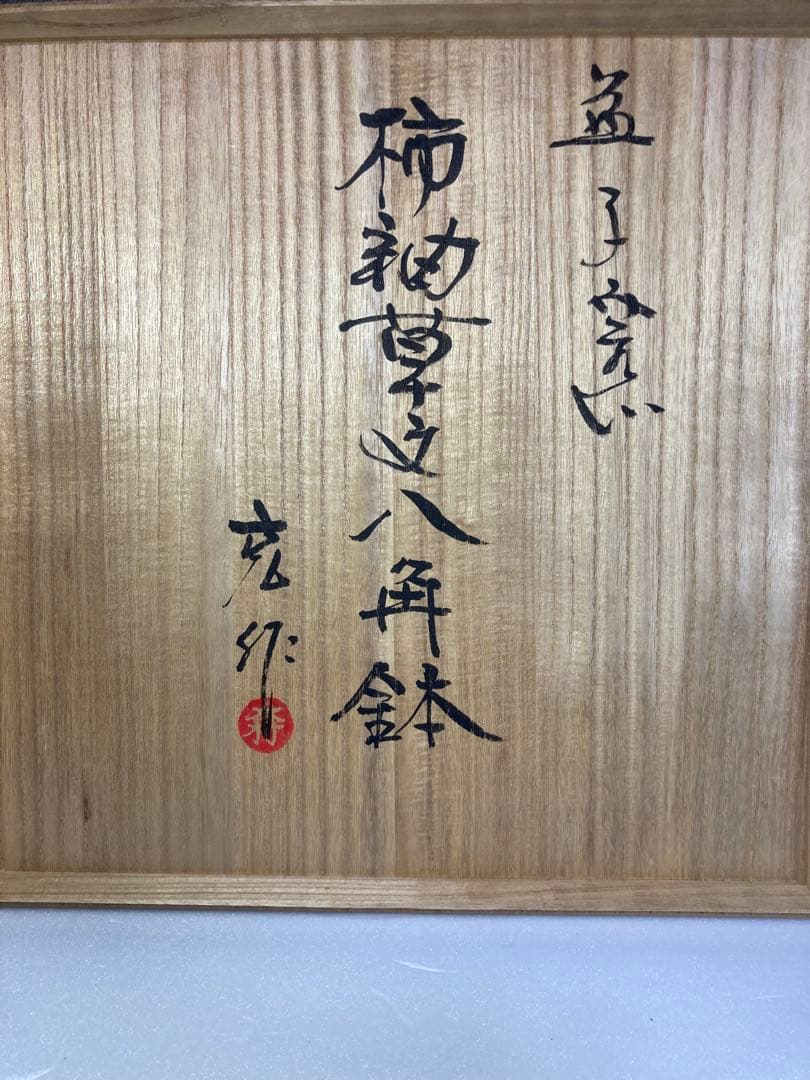 益子窯
柿釉草文八角鉢
宏作